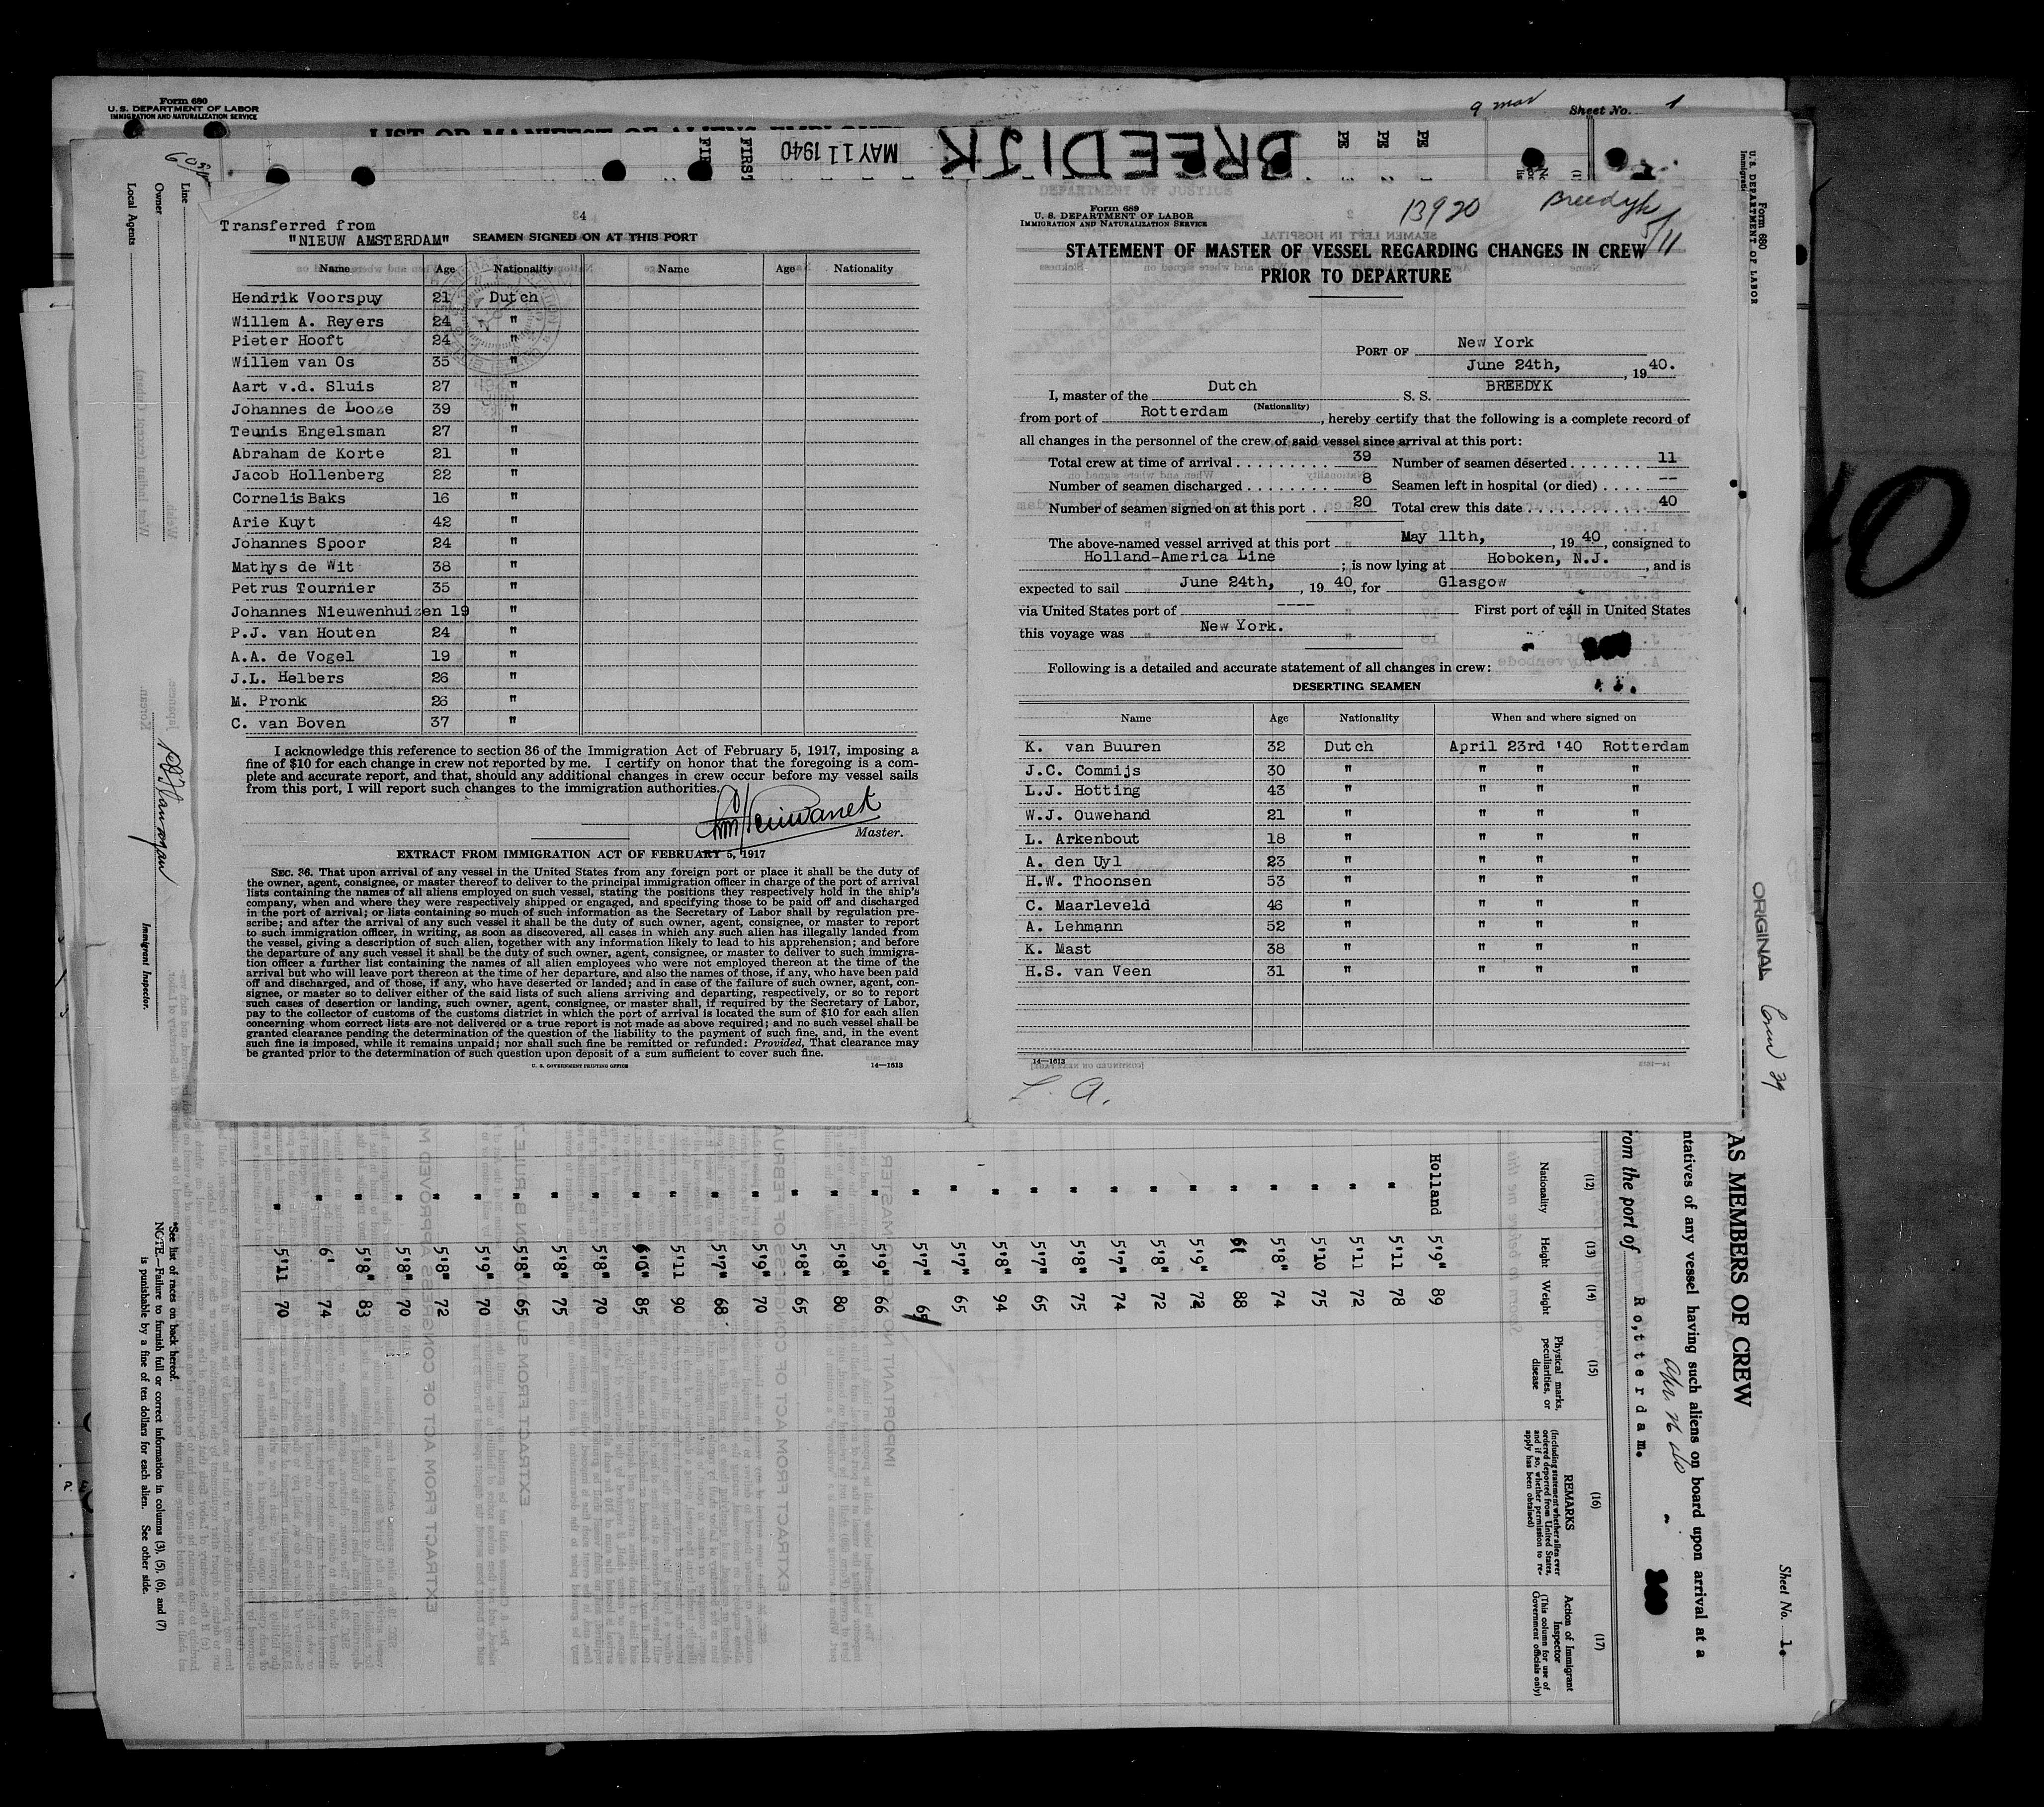 Form 680
U. S. DEPARTMENT OF LABOR
IMMIGRATION AND NATURALIZATION SERVICE
9 mar Sheet No. 1
MAY 11 1940
BREEDIJK
FIRST
Line
Owner
Local Agents
Immigrant Inspector.
4
Transferred from
"NIEUW AMSTERDAM" SEAMEN SIGNED ON AT THIS PORT
Name Age Nationality Name Age Nationality
Hendrik Voorspuy 21 Dutch
Willem A. Reyers 24 "
Pieter Hooft 24 "
Willem van Os 35 "
Aart v.d. Sluis 27 "
Johannes de Looze 39 "
Teunis Engelsman 27 "
Abraham de Korte 21 "
Jacob Hollenberg 22 "
Cornelis Baks 16 "
Arie Kuyt 42 "
Johannes Spoor 24 "
Mathys de Wit 38 "
Petrus Tournier 35 "
Johannes Nieuwenhuizen 19 "
P.J. van Houten 24 "
A.A. de Vogel 19 "
J.L. Helbers 26 "
M. Pronk 26 "
C. van Boven 37 "
I acknowledge this reference to section 36 of the Immigration Act of February 5, 1917, imposing a
fine of $10 for each change in crew not reported by me. I certify on honor that the foregoing is a com-
plete and accurate report, and that, should any additional changes in crew occur before my vessel sails
from this port, I will report such changes to the immigration authorities.
Master.
EXTRACT FROM IMMIGRATION ACT OF FEBRUARY 5, 1917
SEC. 36. That upon arrival of any vessel in the United States from any foreign port or place it shall be the duty of
the owner, agent, consignee, or master thereof to deliver to the principal immigration officer in charge of the port of arrival
lists containing the names of all aliens employed on such vessel, stating the positions they respectively hold in the ship's
company, when and where they were respectively shipped or engaged, and specifying those to be paid off and discharged
in the port of arrival; or lists containing so much of such information as the Secretary of Labor shall by regulation pre-
scribe; and after the arrival of any such vessel it shall be the duty of such owner, agent, consignee, or master to report
to such immigration officer, in writing, as soon as discovered, all cases in which any such alien has illegally landed from
the vessel, giving a description of such alien, together with any information likely to lead to his apprehension; and before
the departure of any such vessel it shall be the duty of such owner, agent, consignee, or master to deliver to such immigra-
tion officer a further list containing the names of all alien employees who were not employed thereon at the time of the
arrival but who will leave port thereon at the time of her departure, and also the names of those, if any, who have been paid
off and discharged, and of those, if any, who have deserted or landed; and in case of the failure of such owner, agent, con-
signee, or master so to deliver either of the said lists of such aliens arriving and departing, respectively, or so to report
such cases of desertion or landing, such owner, agent, consignee, or master shall, if required by the Secretary of Labor,
pay to the collector of customs of the customs district in which the port of arrival is located the sum of $10 for each alien
concerning whom correct lists are not delivered or a true report is not made as above required; and no such vessel shall be
granted clearance pending the determination of the question of the liability to the payment of such fine, and, in the event
such fine is imposed, while it remains unpaid; nor shall such fine be remitted or refunded: Provided, That clearance may
be granted prior to the determination of such question upon deposit of a sum sufficient to cover such fine.
U. S. GOVERNMENT PRINTING OFFICE 14—1613
Form 689
U. S. DEPARTMENT OF LABOR
IMMIGRATION AND NATURALIZATION SERVICE
13920 Breedyk
5/11
STATEMENT OF MASTER OF VESSEL REGARDING CHANGES IN CREW
PRIOR TO DEPARTURE
PORT OF New York
June 24th, , 1940.
I, master of the Dutch S. S. BREEDYK
(Nationality)
from port of Rotterdam , hereby certify that the following is a complete record of
all changes in the personnel of the crew of said vessel since arrival at this port:
Total crew at time of arrival 39 Number of seamen deserted 11
Number of seamen discharged 8 Seamen left in hospital (or died) --
Number of seamen signed on at this port 20 Total crew this date 40
The above-named vessel arrived at this port May 11th, , 1940, consigned to
Holland-America Line ; is now lying at Hoboken, N.J. , and is
expected to sail June 24th, , 1940, for Glasgow
via United States port of ---- First port of call in United States
this voyage was New York.
Following is a detailed and accurate statement of all changes in crew:
DESERTING SEAMEN
Name Age Nationality When and where signed on
K. van Buuren 32 Dutch April 23rd '40 Rotterdam
J.C. Commijs 30 " " " "
L.J. Hotting 43 " " " "
W.J. Ouwehand 21 " " " "
L. Arkenbout 18 " " " "
A. den Uyl 23 " " " "
H.W. Thoonsen 53 " " " "
C. Maarleveld 46 " " " "
A. Lehmann 52 " " " "
K. Mast 38 " " " "
H.S. van Veen 31 " " " "
14—1613
L. A.
Form 680
U. S. DEPARTMENT OF LABOR
ORIGINAL
Crew 39
AS MEMBERS OF CREW
Sheet No. 1.
ntatives of any vessel having such aliens on board upon arrival at a
rom the port of Rotterdam.
(12) (13) (14) (15) (16) (17)
Nationality
Height
Weight
Physical marks, peculiarities, or disease
REMARKS
(Including statement whether alien ever ordered deported from United States, and if so, whether permission to reapply has been obtained)
Action of Immigrant Inspector
(This column for use of Government officials only)
Holland 5'9" 89
" 5'11 78
" 5'11 72
" 5'10 75
" 5'8" 74
" 6' 88
" 5'9" 72
" 5'8" 72
" 5'7" 74
" 5'8" 75
" 5'7" 65
" 5'8" 94
" 5'7" 65
" 5'7"
" 5'9" 66
" 5'8" 80
" 5'8" 65
" 5'9" 70
" 5'7" 68
" 5'11 90
" 6'0" 85
" 5'8" 70
" 5'8" 75
" 5'8" 65
" 5'9" 70
" 5'8" 72
" 5'8" 70
" 5'8" 83
" 6' 74
" 5'11 70
*See list of races on back hereof.
NOTE.—Failure to furnish full or correct information in columns (3), (5), (6), and (7)
is punishable by a fine of ten dollars for each alien. See other side.